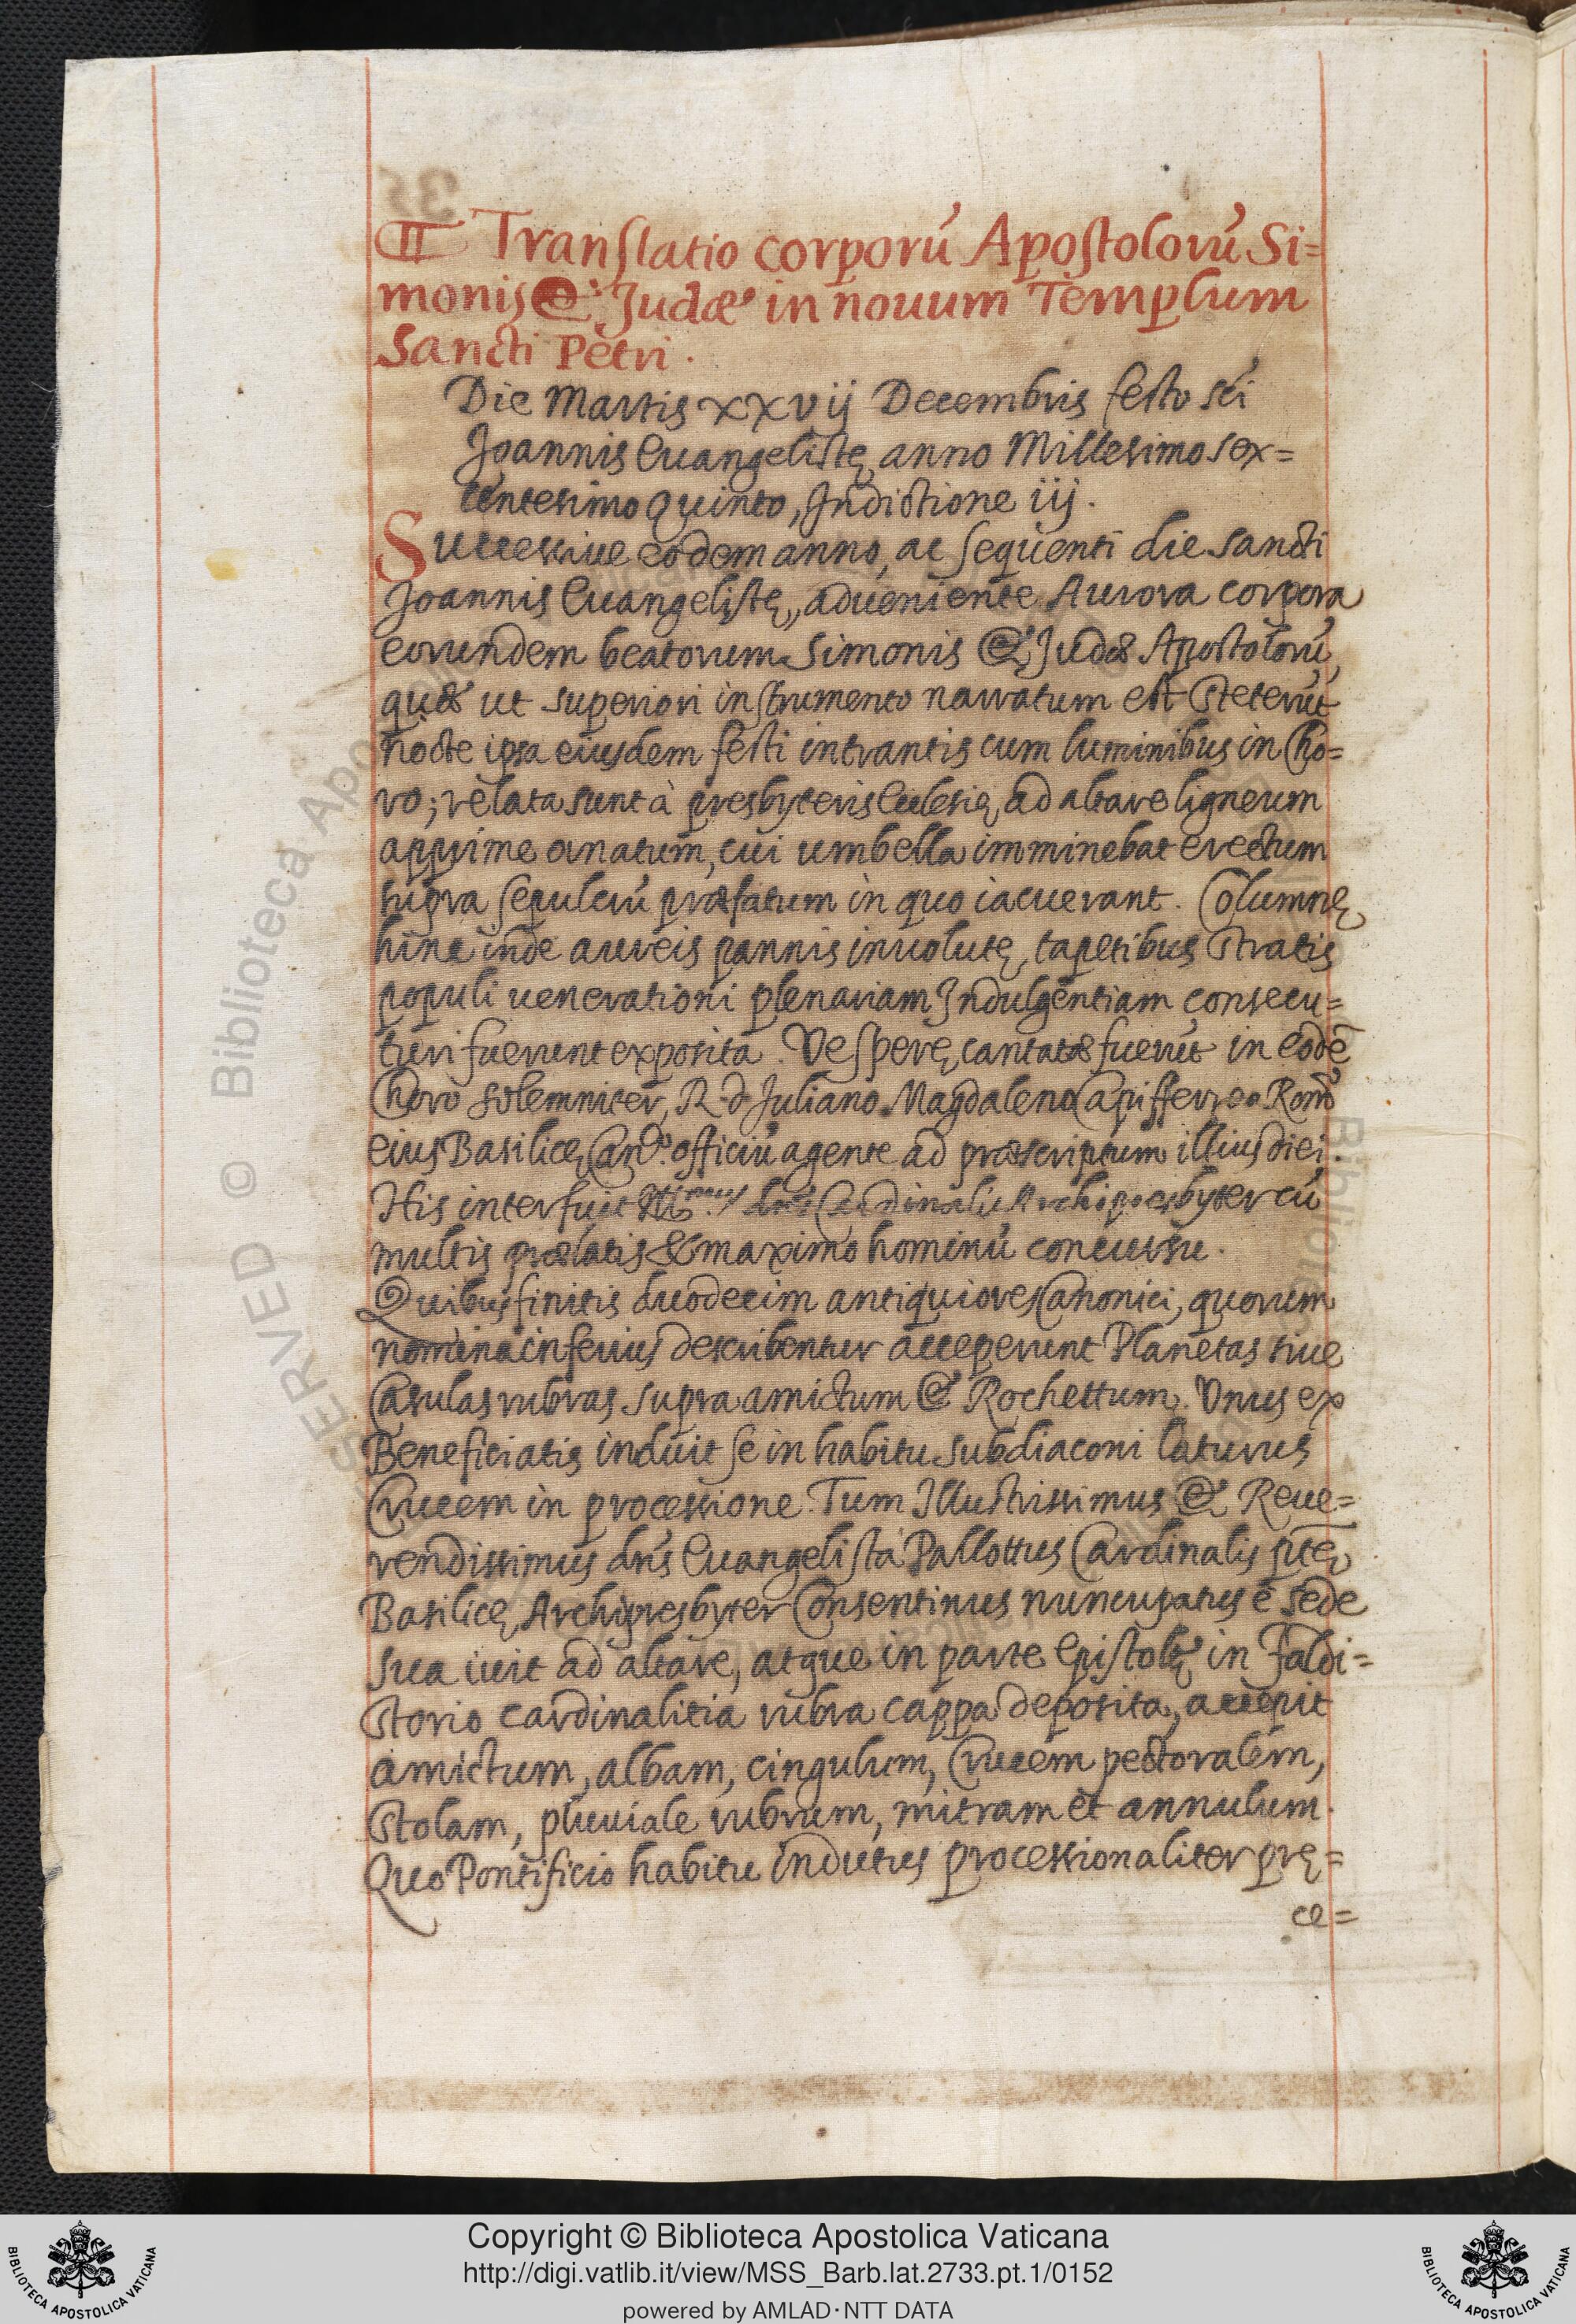 35
II Translatio corporũ Apostolorũ Si=
monis & Judæ in nouum Templum
Sancti Petri.
Die Martis xxvij Decembris festo sc̃i
Joannis Euangelistę anno Millesimo sex=
centesimo quinto, Indictione iij.
Successiue eodem anno, ac sequenti die sancti
Joannis Euangelistę, adueniente Aurora corpora
eorundem beatorum Simonis & Judæ Apostolorũ,
quæ ut superiori instrumento narratum est steterũt
nocte ipsa eiusdem festi intrantis cum luminibus in Cho=
ro; relata sunt à presbyteris Ecclesię ad altare ligneum
apprime ornatum, cui umbella imminebat erectum
supra sepulcrũ præfatum in quo iacuerant. Columnę
hinc inde aureis pannis inuolutę, tapetibus stratis
populi uenerationi plenariam Indulgentiam consecu=
turi fuerunt exposita. Vesperę cantatæ fuerũt in eodẽ
Choro solemniter, R. d. Juliano Magdaleno Capiferreo Rom̃o
eius Basilicę Can.^co officiũ agente ad præscriptum illius diei.
His interfuit Ill.^mus dñs Cardinalis Archipresbyter cũ
multis prælatis & maximo hominũ concursu.
Quibus finitis duodecim antiquiores Canonici, quorum
nomina inferius describentur acceperunt Planetas siue
Casulas rubras supra amictum & Rochettum. Vnus ex
Beneficiatis induit se in habitu subdiaconi laturus
Crucem in processione. Tum Illustrissimus & Reue=
rendissimus dñs Euangelista Pallottus Cardinalis ptę
Basilicę Archipresbyter Consentinus nuncupatus è sede
sua iuit ad altare, atque in parte Epistolę in Faldi=
storio cardinalitia rubra cappa deposita, accepit
amictum, albam, cingulum, Crucem pectoralem,
stolam, pluuiale rubrum, mitram et annulum.
Quo Pontificio habitu indutus processionaliter prę=
ce=
© Biblioteca Apostolica Vaticana
Copyright © Biblioteca Apostolica Vaticana
http://digi.vatlib.it/view/MSS_Barb.lat.2733.pt.1/0152
powered by AMLAD·NTT DATA
BIBLIOTECA APOSTOLICA VATICANA
BIBLIOTECA APOSTOLICA VATICANA